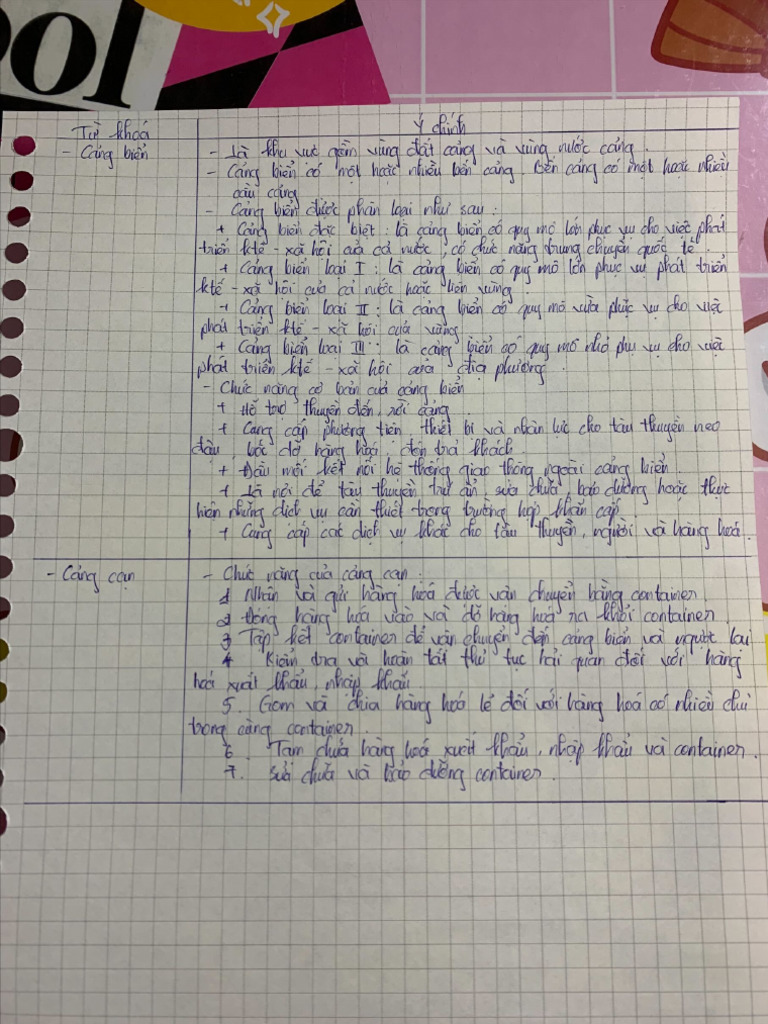 ool
Từ khoá
Ý chính
- Cảng biển
- Là khu vực gồm vùng đất cảng và vùng nước cảng.
- Cảng biển có một hoặc nhiều bến cảng. Bến cảng có một hoặc nhiều
cầu cảng
- Cảng biển được phân loại như sau:
+ Cảng biển đặc biệt: là cảng biển có quy mô lớn phục vụ cho việc phát
triển ktế - xã hội của cả nước, có chức năng trung chuyển quốc tế.
+ Cảng biển loại I: là cảng biển có quy mô lớn phục vụ phát triển
ktế - xã hội của cả nước hoặc liên vùng.
+ Cảng biển loại II: là cảng biển có quy mô vừa phục vụ cho việc
phát triển ktế - xã hội của vùng
+ Cảng biển loại III: là cảng biển có quy mô nhỏ phụ vụ cho việc
phát triển ktế - xã hội của địa phương.
- Chức năng cơ bản của cảng biển
+ Hỗ trợ thuyền đến, rời cảng
+ Cung cấp phương tiện, thiết bị và nhân lực cho tàu thuyền neo
đậu, bốc dỡ hàng hoá, đón trả khách.
+ Đầu mối kết nối hệ thống giao thông ngoài cảng biển.
+ Là nơi để tàu thuyền trú ẩn, sửa chữa, bảo dưỡng hoặc thực
hiện những dịch vụ cần thiết trong trường hợp khẩn cấp.
+ Cung cấp các dịch vụ khác cho tàu thuyền, người và hàng hoá.
- Cảng cạn
- Chức năng của cảng cạn:
1 Nhận và gửi hàng hoá được vận chuyển bằng container.
2 Đóng hàng hoá vào và dỡ hàng hoá ra khỏi container.
3 Tập kết container để vận chuyển đến cảng biển và ngược lại
4 Kiểm tra và hoàn tất thủ tục hải quan đối với hàng
hoá xuất khẩu, nhập khẩu
5. Gom và chia hàng hoá lẻ đối với hàng hoá có nhiều chủ
trong cùng container.
6. Tạm chứa hàng hoá xuất khẩu, nhập khẩu và container.
7. Sửa chữa và bảo dưỡng container.